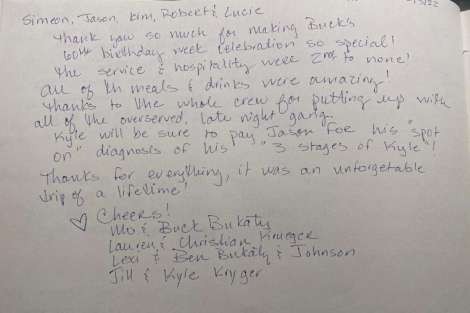 Simeon, Jason, Kim, Robert & Lucie
Thank you so much for making Buck's
60th birthday week celebration so special!
The service & hospitality were 2nd to none!
All of th meals & drinks were amazing!
Thanks to the whole crew for putting up with
all of the overserved, late night gang.
Kyle will be sure to pay Jason foe his "spot
on" diagnosis of his "3 stages of Kyle"!
Thanks for everything, it was an unforgetable
trip of a lifetime!
♡ Cheers!
Mo & Buck Bukaty
Lauren & Christian Krueger
Lexi & Ben Bukaty & Johnson
Jill & Kyle Kryger